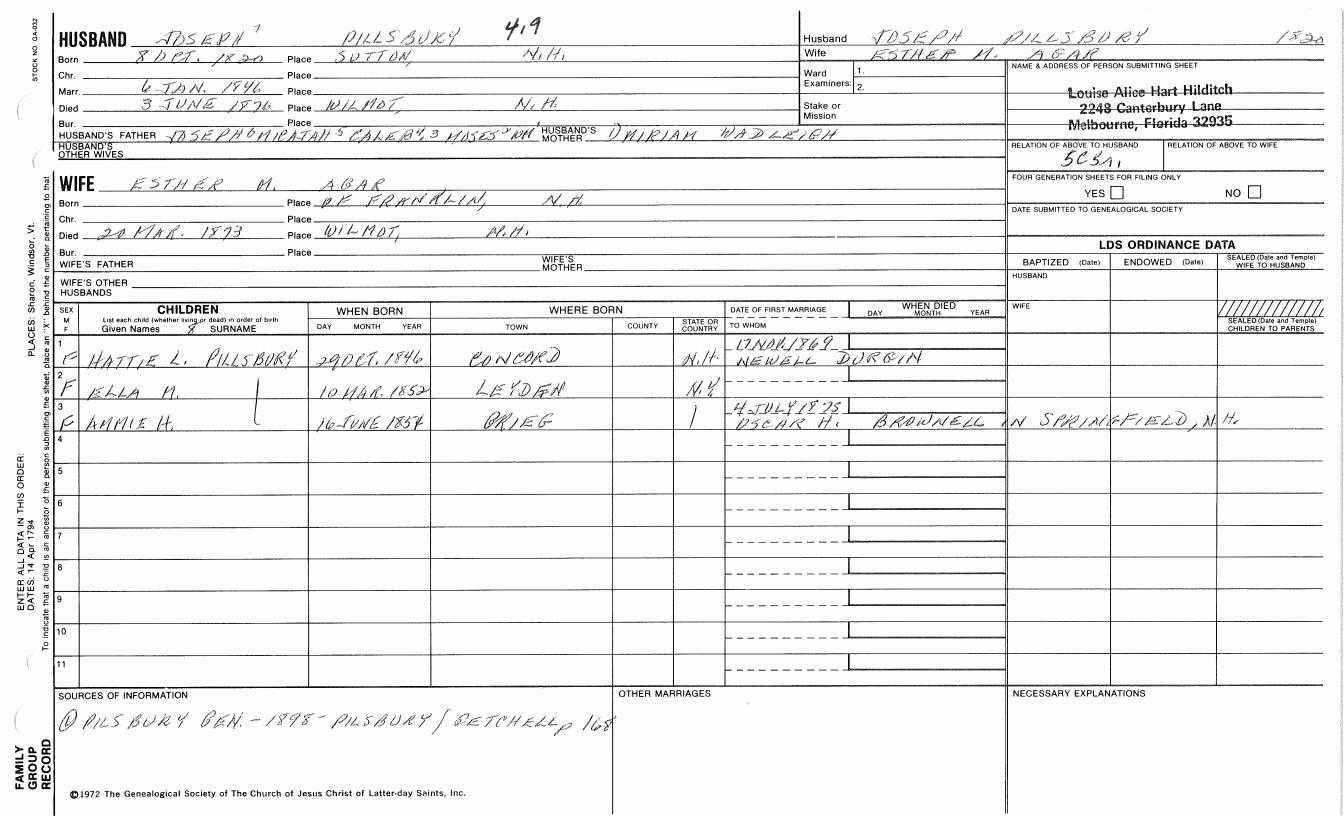 STOCK NO. GA-032
HUSBAND JOSEPH 7 PILLSBURY 419
Born 8 OPT. 1820 Place SUTTON, N.H.
Chr. Place
Marr. 6 JAN. 1846 Place
Died 3 JUNE 1876 Place WILMOT, N.H.
Bur. Place
HUSBAND'S FATHER JOSEPH 6 MICAJAH 5 CALEB 4, 3 MOSES 2 WM 1 HUSBAND'S MOTHER 1) MIRIAM WADLEIGH
HUSBAND'S OTHER WIVES
Husband JOSEPH PILLSBURY 1820
Wife ESTHER M. AGAR
Ward Examiners: 1.
2.
Stake or Mission
NAME & ADDRESS OF PERSON SUBMITTING SHEET
Louise Alice Hart Hilditch
2248 Canterbury Lane
Melbourne, Florida 32935
RELATION OF ABOVE TO HUSBAND RELATION OF ABOVE TO WIFE
FOUR GENERATION SHEETS FOR FILING ONLY
YES NO
DATE SUBMITTED TO GENEALOGICAL SOCIETY
WIFE ESTHER M. AGAR
Born Place OF FRANKLIN, N.H.
Chr. Place
Died 20 MAR. 1873 Place WILMOT, N.H.
Bur. Place
WIFE'S FATHER WIFE'S MOTHER
WIFE'S OTHER HUSBANDS
LDS ORDINANCE DATA
BAPTIZED (Date) ENDOWED (Date) SEALED (Date and Temple) WIFE TO HUSBAND
HUSBAND
WIFE
SEALED (Date and Temple) CHILDREN TO PARENTS
SEX M F CHILDREN List each child (whether living or dead) in order of birth Given Names 8 SURNAME
WHEN BORN DAY MONTH YEAR
WHERE BORN TOWN COUNTY STATE OR COUNTRY
DATE OF FIRST MARRIAGE TO WHOM
WHEN DIED DAY MONTH YEAR
17 NOV. 1869
1 F HATTIE L. PILLSBURY 29 OCT. 1846 CONCORD N.H. NEWELL DURGIN
2 F ELLA M. 10 MAR. 1852 LEYDEN N.Y.
4 JULY 1875
3 F ANNIE H. 16 JUNE 1854 GRIEG OSCAR H. BROWNELL IN SPRINGFIELD, N.H.
4
5
6
7
8
9
10
11
SOURCES OF INFORMATION
OTHER MARRIAGES
NECESSARY EXPLANATIONS
① PILSBURY GEN. - 1898 - PILSBURY / GETCHELL p 168
©1972 The Genealogical Society of The Church of Jesus Christ of Latter-day Saints, Inc.
PLACES: Sharon, Windsor, Vt.
ENTER ALL DATA IN THIS ORDER:
DATES: 14 Apr 1794
To indicate that a child is an ancestor of the person submitting the sheet, place an "X" behind the number pertaining to that
FAMILY
GROUP
RECORD